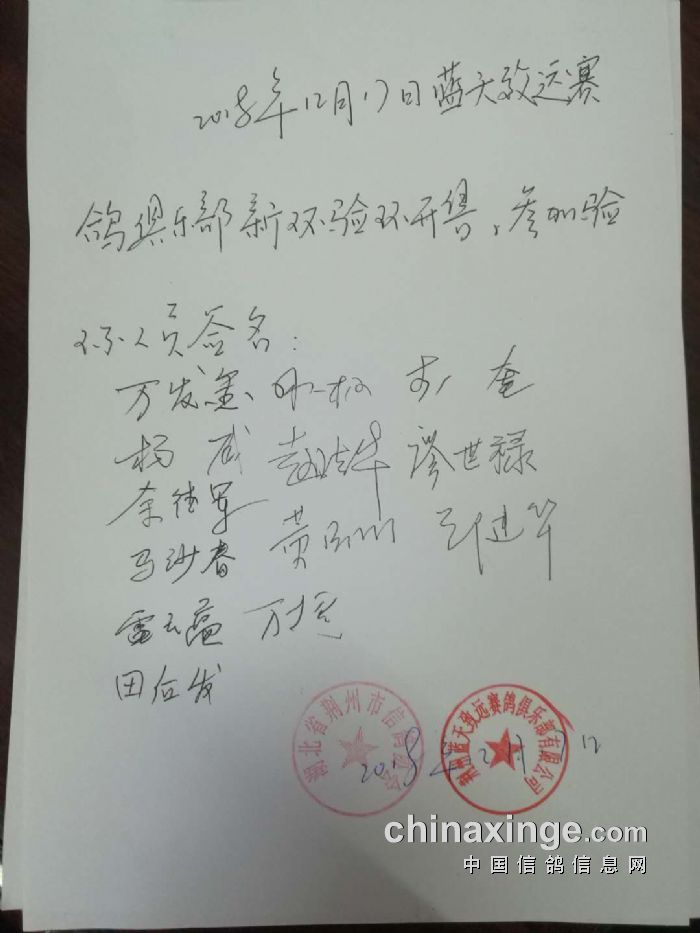 2018年12月17日蓝天致远赛
鸽俱乐部新环验环开售，参加验
环人员签名：
万发金
杨成 廖世禄
余德军
马沙春 黄
雷云蕴 万
田后发
湖北省荆州市信鸽协会
荆州蓝天致远赛鸽俱乐部有限公司
2018年12月17日
chinaxinge.com
中国信鸽信息网